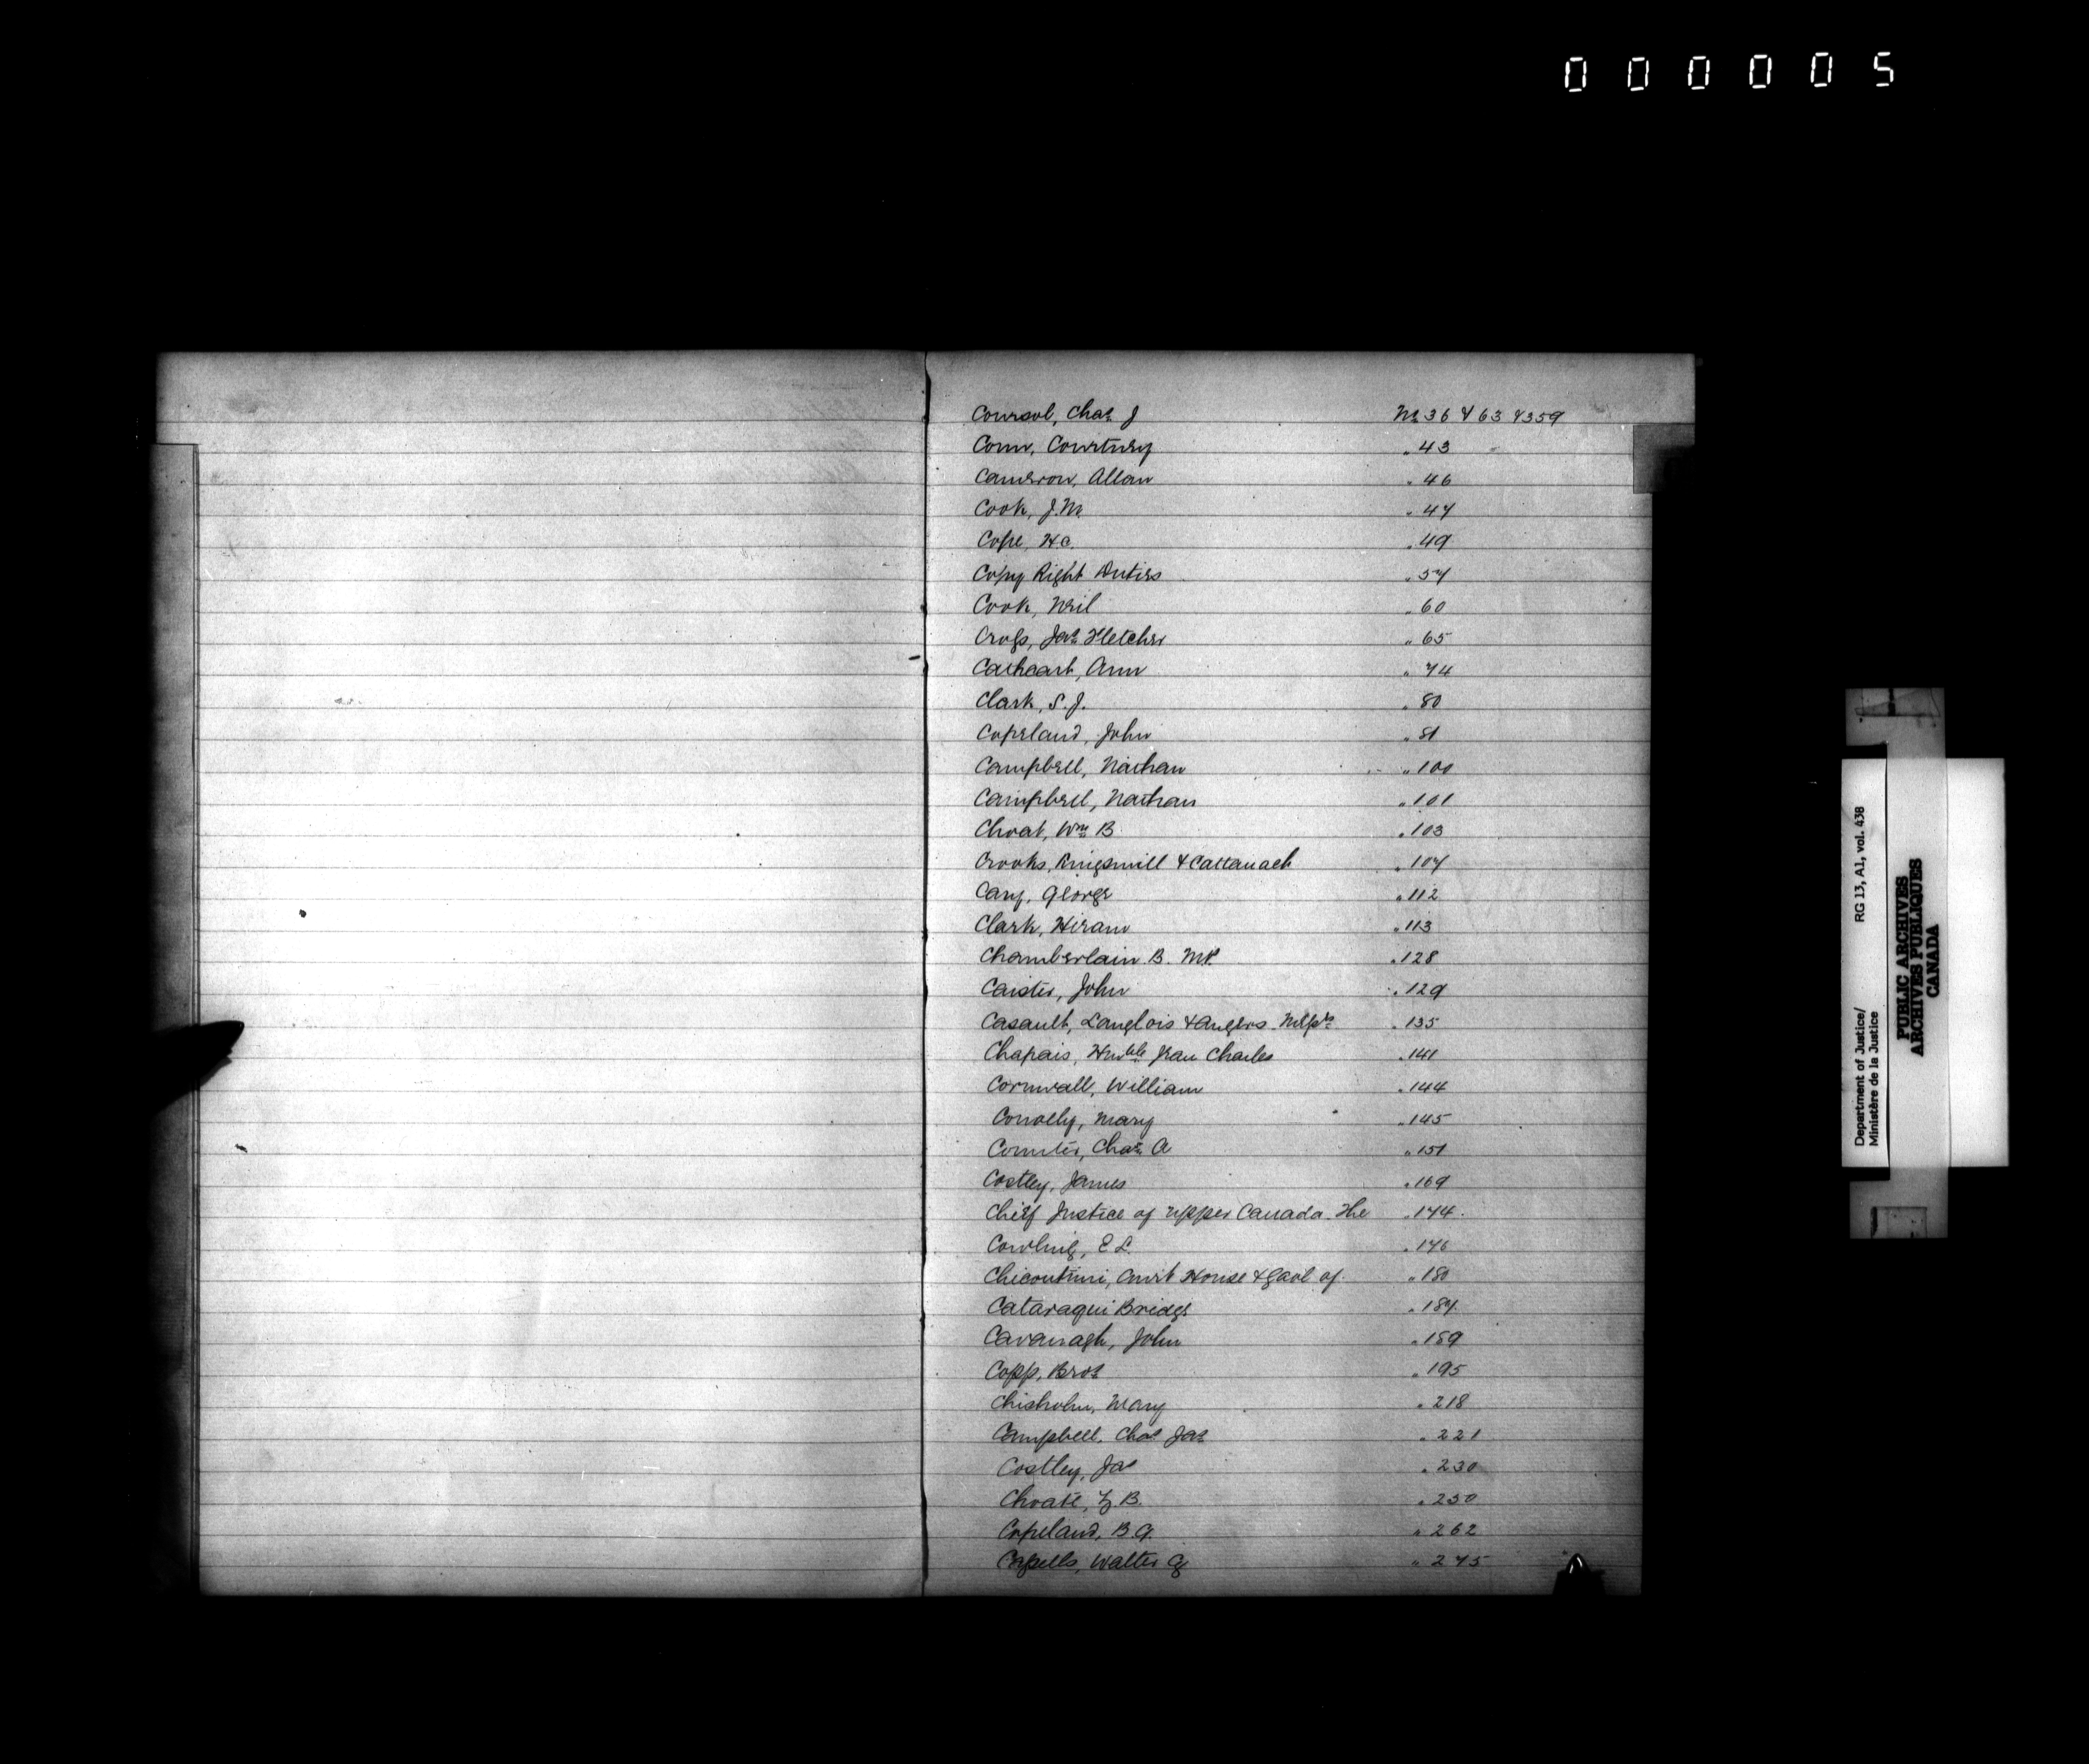 000005
Coursol, Chas. J № 36 & 63 & 359
Conn, Courtney " 43
Cameron, Allan " 46
Cook, J.M. " 47
Cope, H.C. " 49
Copy Right Duties " 57
Cook, Neil " 60
Cross, Jas. Fletcher " 65
Cathcart, Ann " 74
Clark, S. J. " 80
Copeland, John " 81
Campbell, Nathan " 100
Campbell, Nathan " 101
Choat, Wm. B " 103
Crooks, Kingsmill & Cattanach " 107
Cary, George " 112
Clark, Hiram " 113
Chamberlain B. M.P. " 128
Caister, John " 129
Casault, Langlois & Angers Messrs " 135
Chapais, Honble Jean Charles " 141
Cornwall, William " 144
Conolly, Mary " 145
Chas. A " 151
Costley, James " 169
Chief Justice of Upper Canada The " 174
Cowling, E L. " 176
Chicoutimi, Court House & Gaol of " 180
Cataraqui Bridge " 187
Cavanagh, John " 189
Copp, Bros " 195
Chisholm, Mary " 218
Campbell, Chas Jas " 221
Costley, Jas " 230
Choate, B. " 250
Copeland, B.G. " 262
Walter " 275
Department of Justice/ RG 13, A1, vol. 438
Ministère de la Justice
PUBLIC ARCHIVES
ARCHIVES PUBLIQUES
CANADA